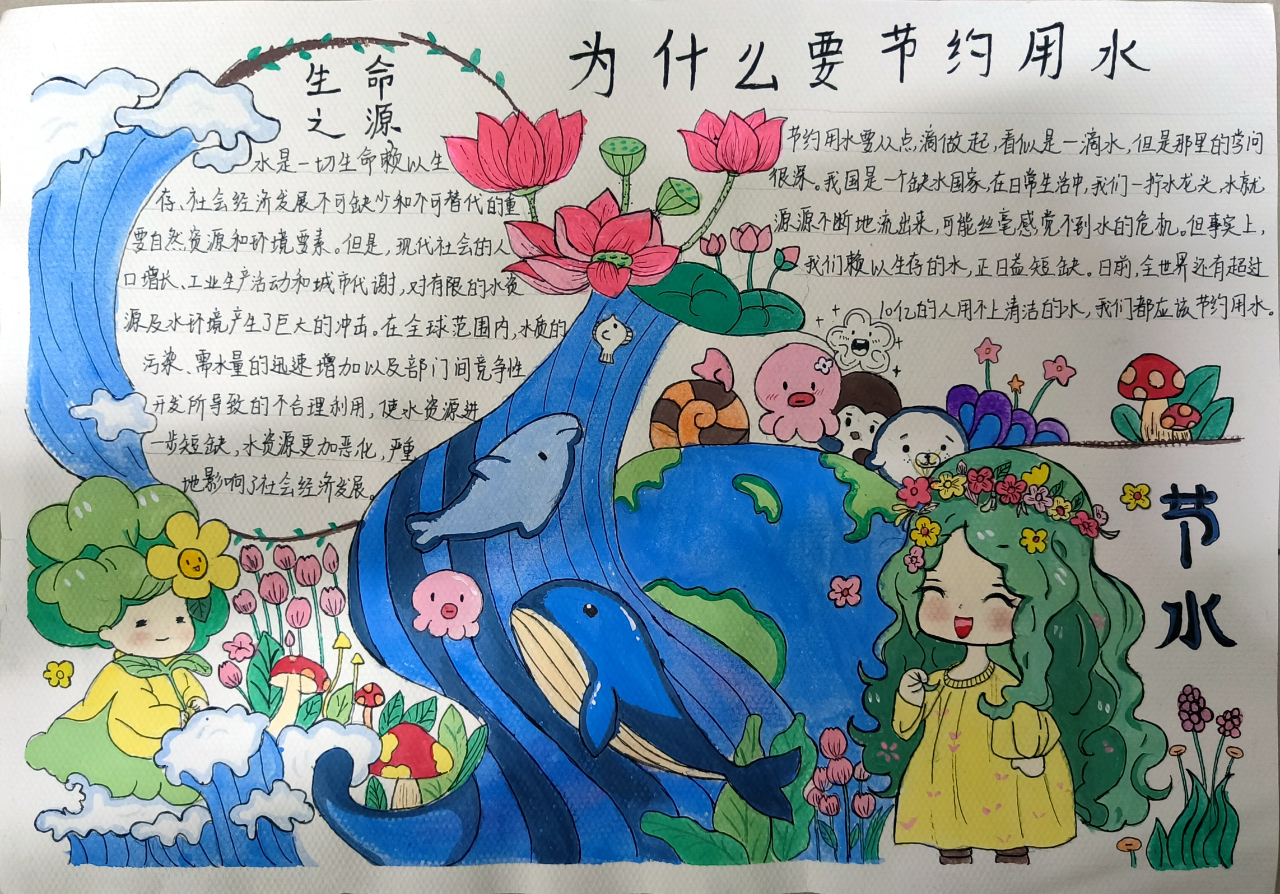 为什么要节约用水
生命
之源
水是一切生命赖以生
存、社会经济发展不可缺少和不可替代的重
要自然资源和环境要素。但是，现代社会的人
口增长、工业生产活动和城市代谢，对有限的水资
源及水环境产生了巨大的冲击。在全球范围内，水质的
污染、需水量的迅速增加以及部门间竞争性
开发所导致的不合理利用，使水资源进
一步短缺，水资源更加恶化，严重
地影响了社会经济发展。
节约用水要从点滴做起，看似是一滴水，但是那里的学问
很深。我国是一个缺水国家，在日常生活中，我们一拧水龙头，水就
源源不断地流出来，可能丝毫感觉不到水的危机。但事实上，
我们赖以生存的水，正日益短缺。目前，全世界还有超过
10亿的人用不上清洁的水，我们都应该节约用水。
节
水